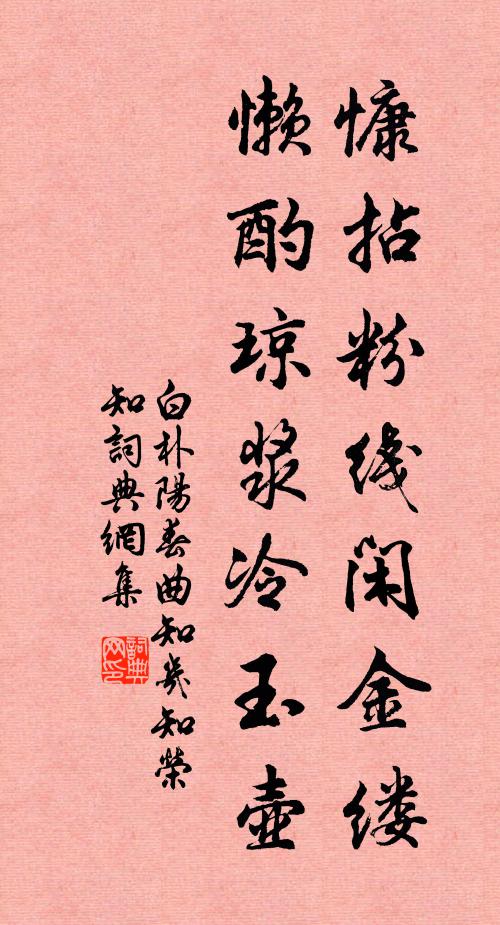 慵拈粉线闲金缕
懒酌琼浆冷玉壶
白朴陽春曲知幾知榮
知詞典網集
詞典网印